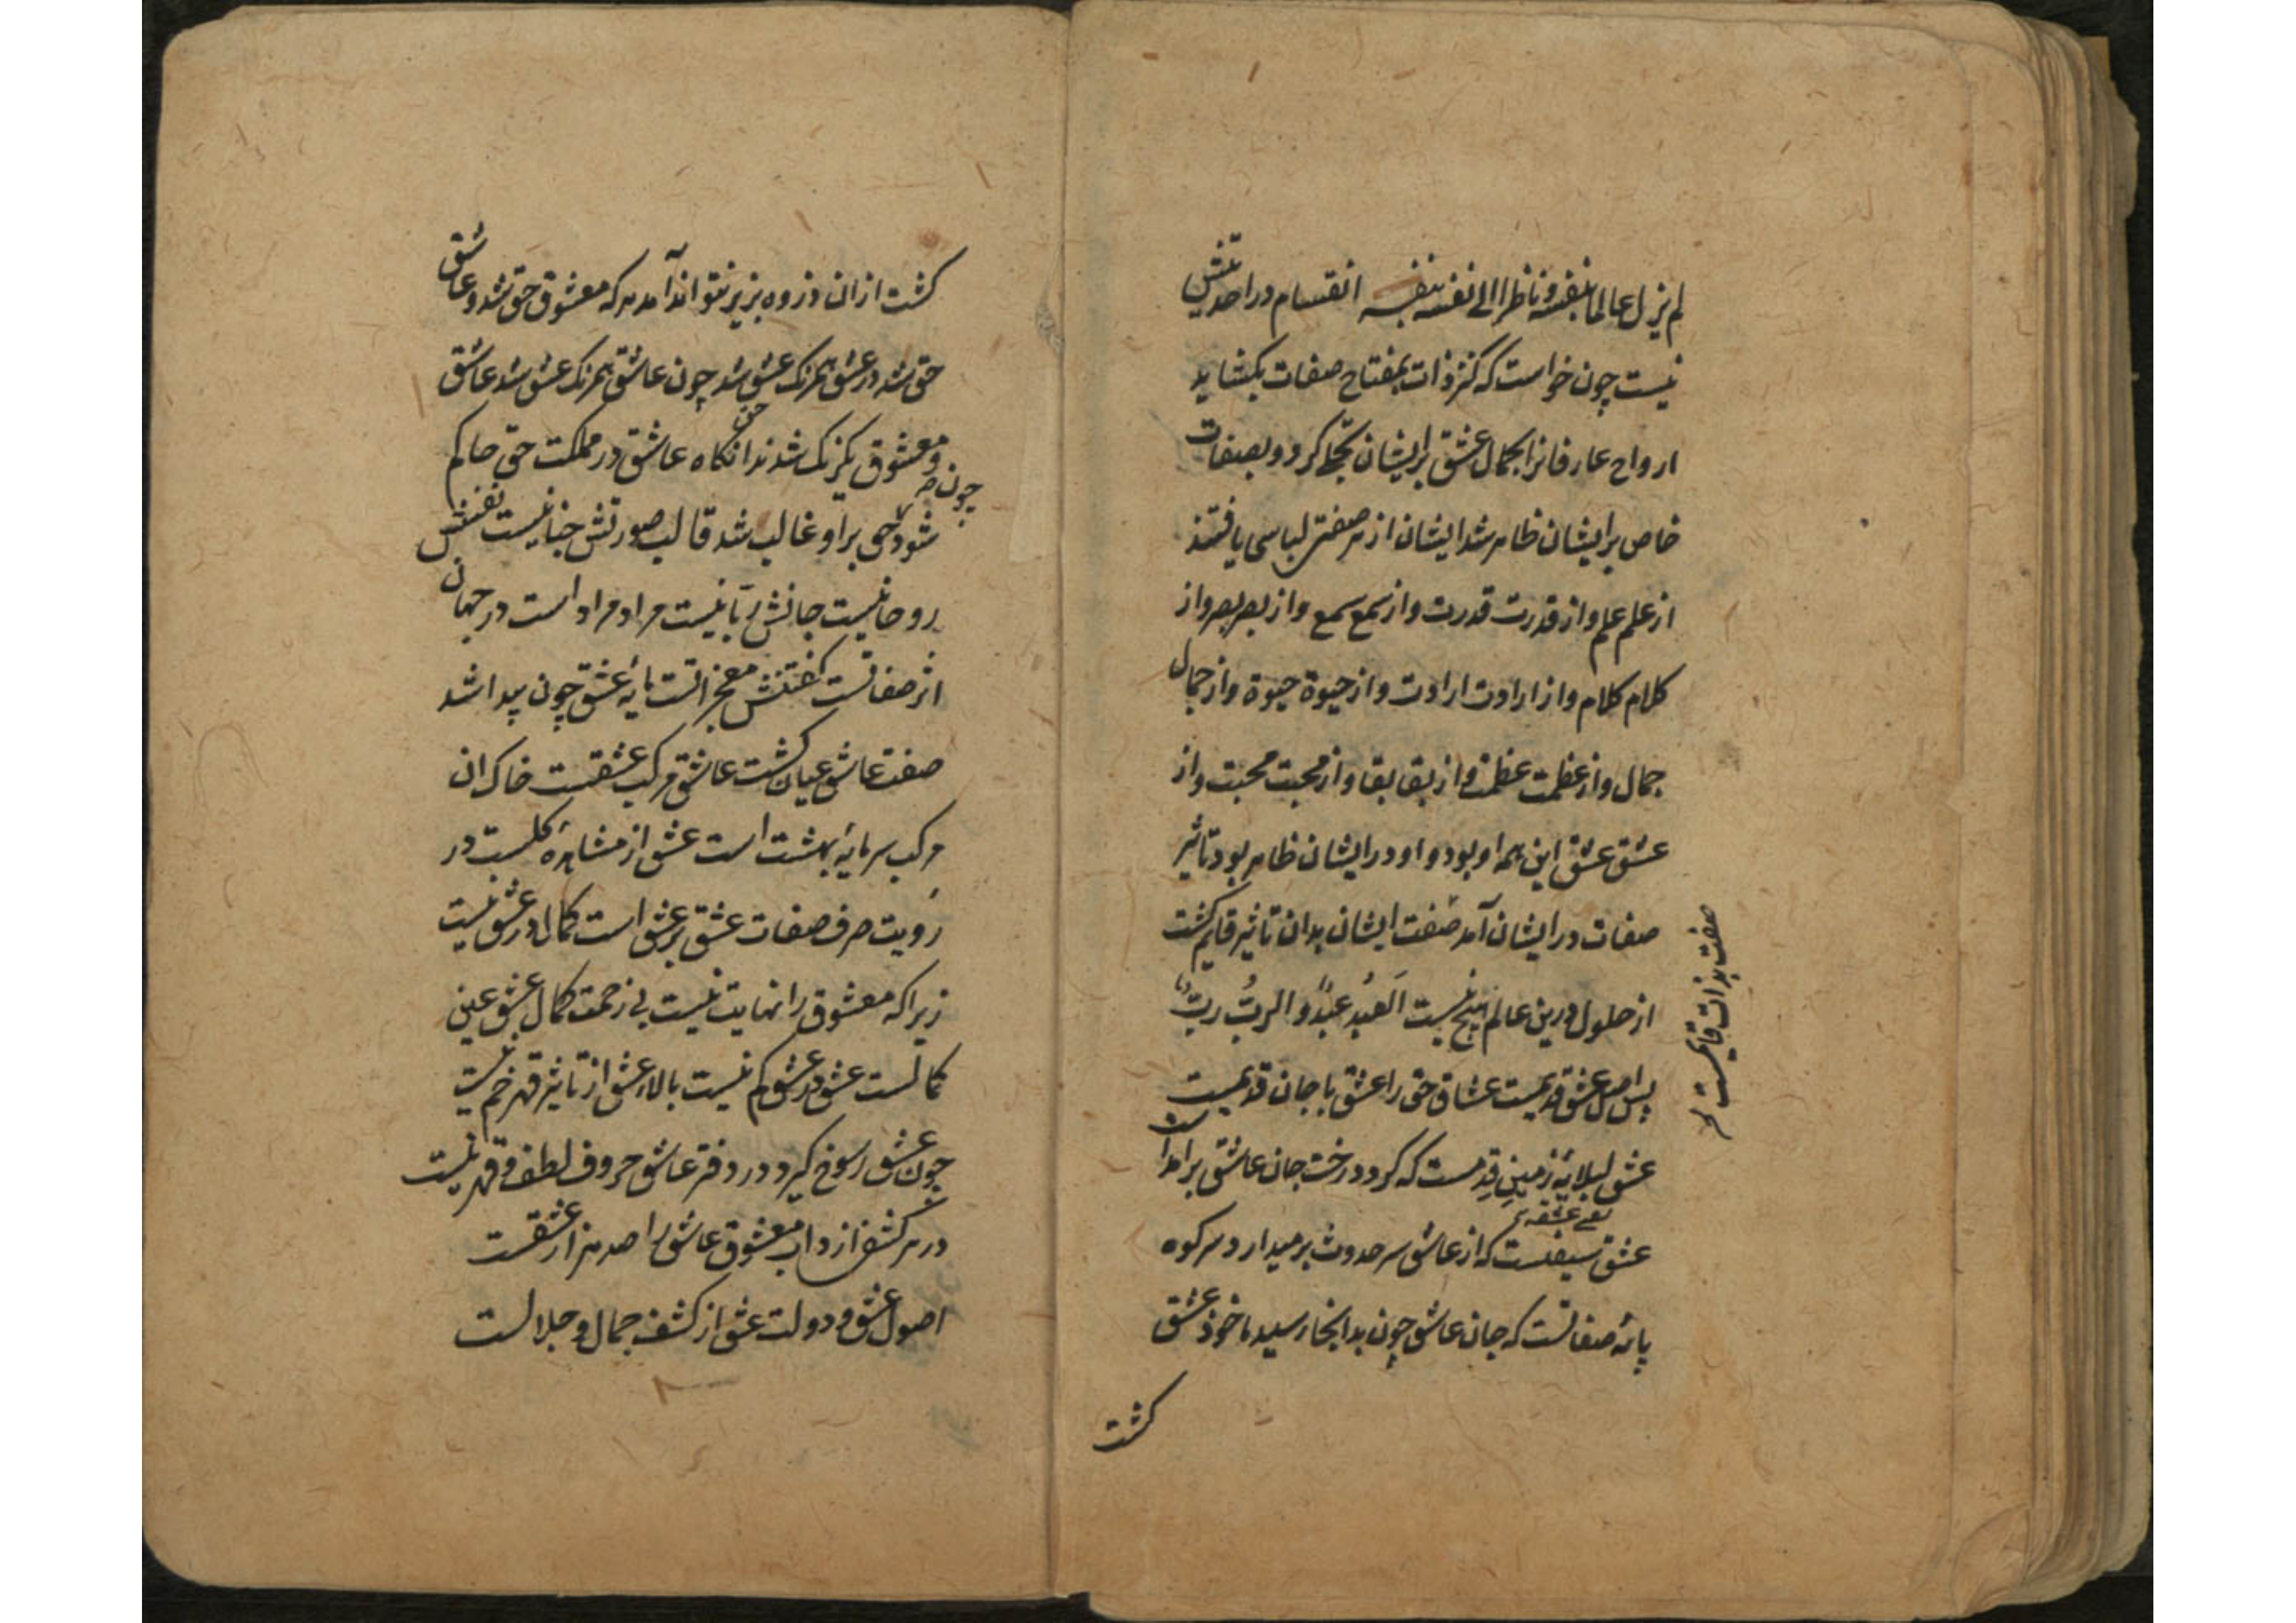 لم یزل عالما بنفسه و ناظرا الی نفسه بنفسه انقسام در احدیتش
نیست چون خواست که کنز ذات بمفتاح صفات بکشاید
ارواح عارفانرا بجمال عشق برایشان تجلی کرد و بصفات
خاص برایشان ظاهر شد ایشان از هر صفتی لباسی یافتند
از علم علم و از قدرت قدرت و از سمع سمع و از بصر بصر و از
کلام کلام و از ارادت ارادت و از حیوة حیوة و از جمال
جمال و از عظمت عظمت و از بقا بقا و از محبت محبت و از
عشق عشق این همه او بود و او در ایشان ظاهر بود تاثیر
صفات در ایشان آمد صفت ایشان بدان تاثیر قایم کشت
صفت بذات قایمست
از حلول درین عالم هیچ نیست العبد عبد و الرب رب
پس اصل عشق قدیمست عشاق حق را عشق با جان قدیمست
عشق لبلابه زمین قدمست که کرد درخت جان عاشق برآمد
عشق سیفست که از عاشق سر حدوث برمیدارد سر کوه
پایه صفاتست که جان عاشق چون بدانجا رسید ماخوذ عشق
کشت
کشت از ان ذروه بزیر نتواند آمد هر که معشوق حق شد و عاشق
حق شد در عشق همرنک عشق شد چون عاشق همرنک عشق شد عاشق
و معشوق یکرنک شدند انکاه عاشق در مملکت حق حاکم
شود چون حق برو غالب شد قالب صورتش جنانیست نفسش
روحانیست جانش ربانیست مراد مراد است در جهان
اثر صفاتست کفتنش معجزاتست مایه عشق چون پیدا شد
صفت عاشق عیان کشت عاشق مرکب عشقست خاک ان
مرکب سرمایه بهشت است عشق از مشاهده کلست در
رویت صرف صفات عشق بر عشق است کمال در عشق نیست
زیرا که معشوق را نهایت نیست بی زحمت کمال عشق عین
کمالست عشق در عشق کم نیست بالاء عشق از تاثیر قهر خم نیست
چون عشق رسوخ کیرد در دفتر عاشق حروف لطف و قهر نیست
در هر کشفی از داب معشوق عاشق را صد هزار عشقست
اصول عشق و دولت عشق از کشف جمال و جلالست